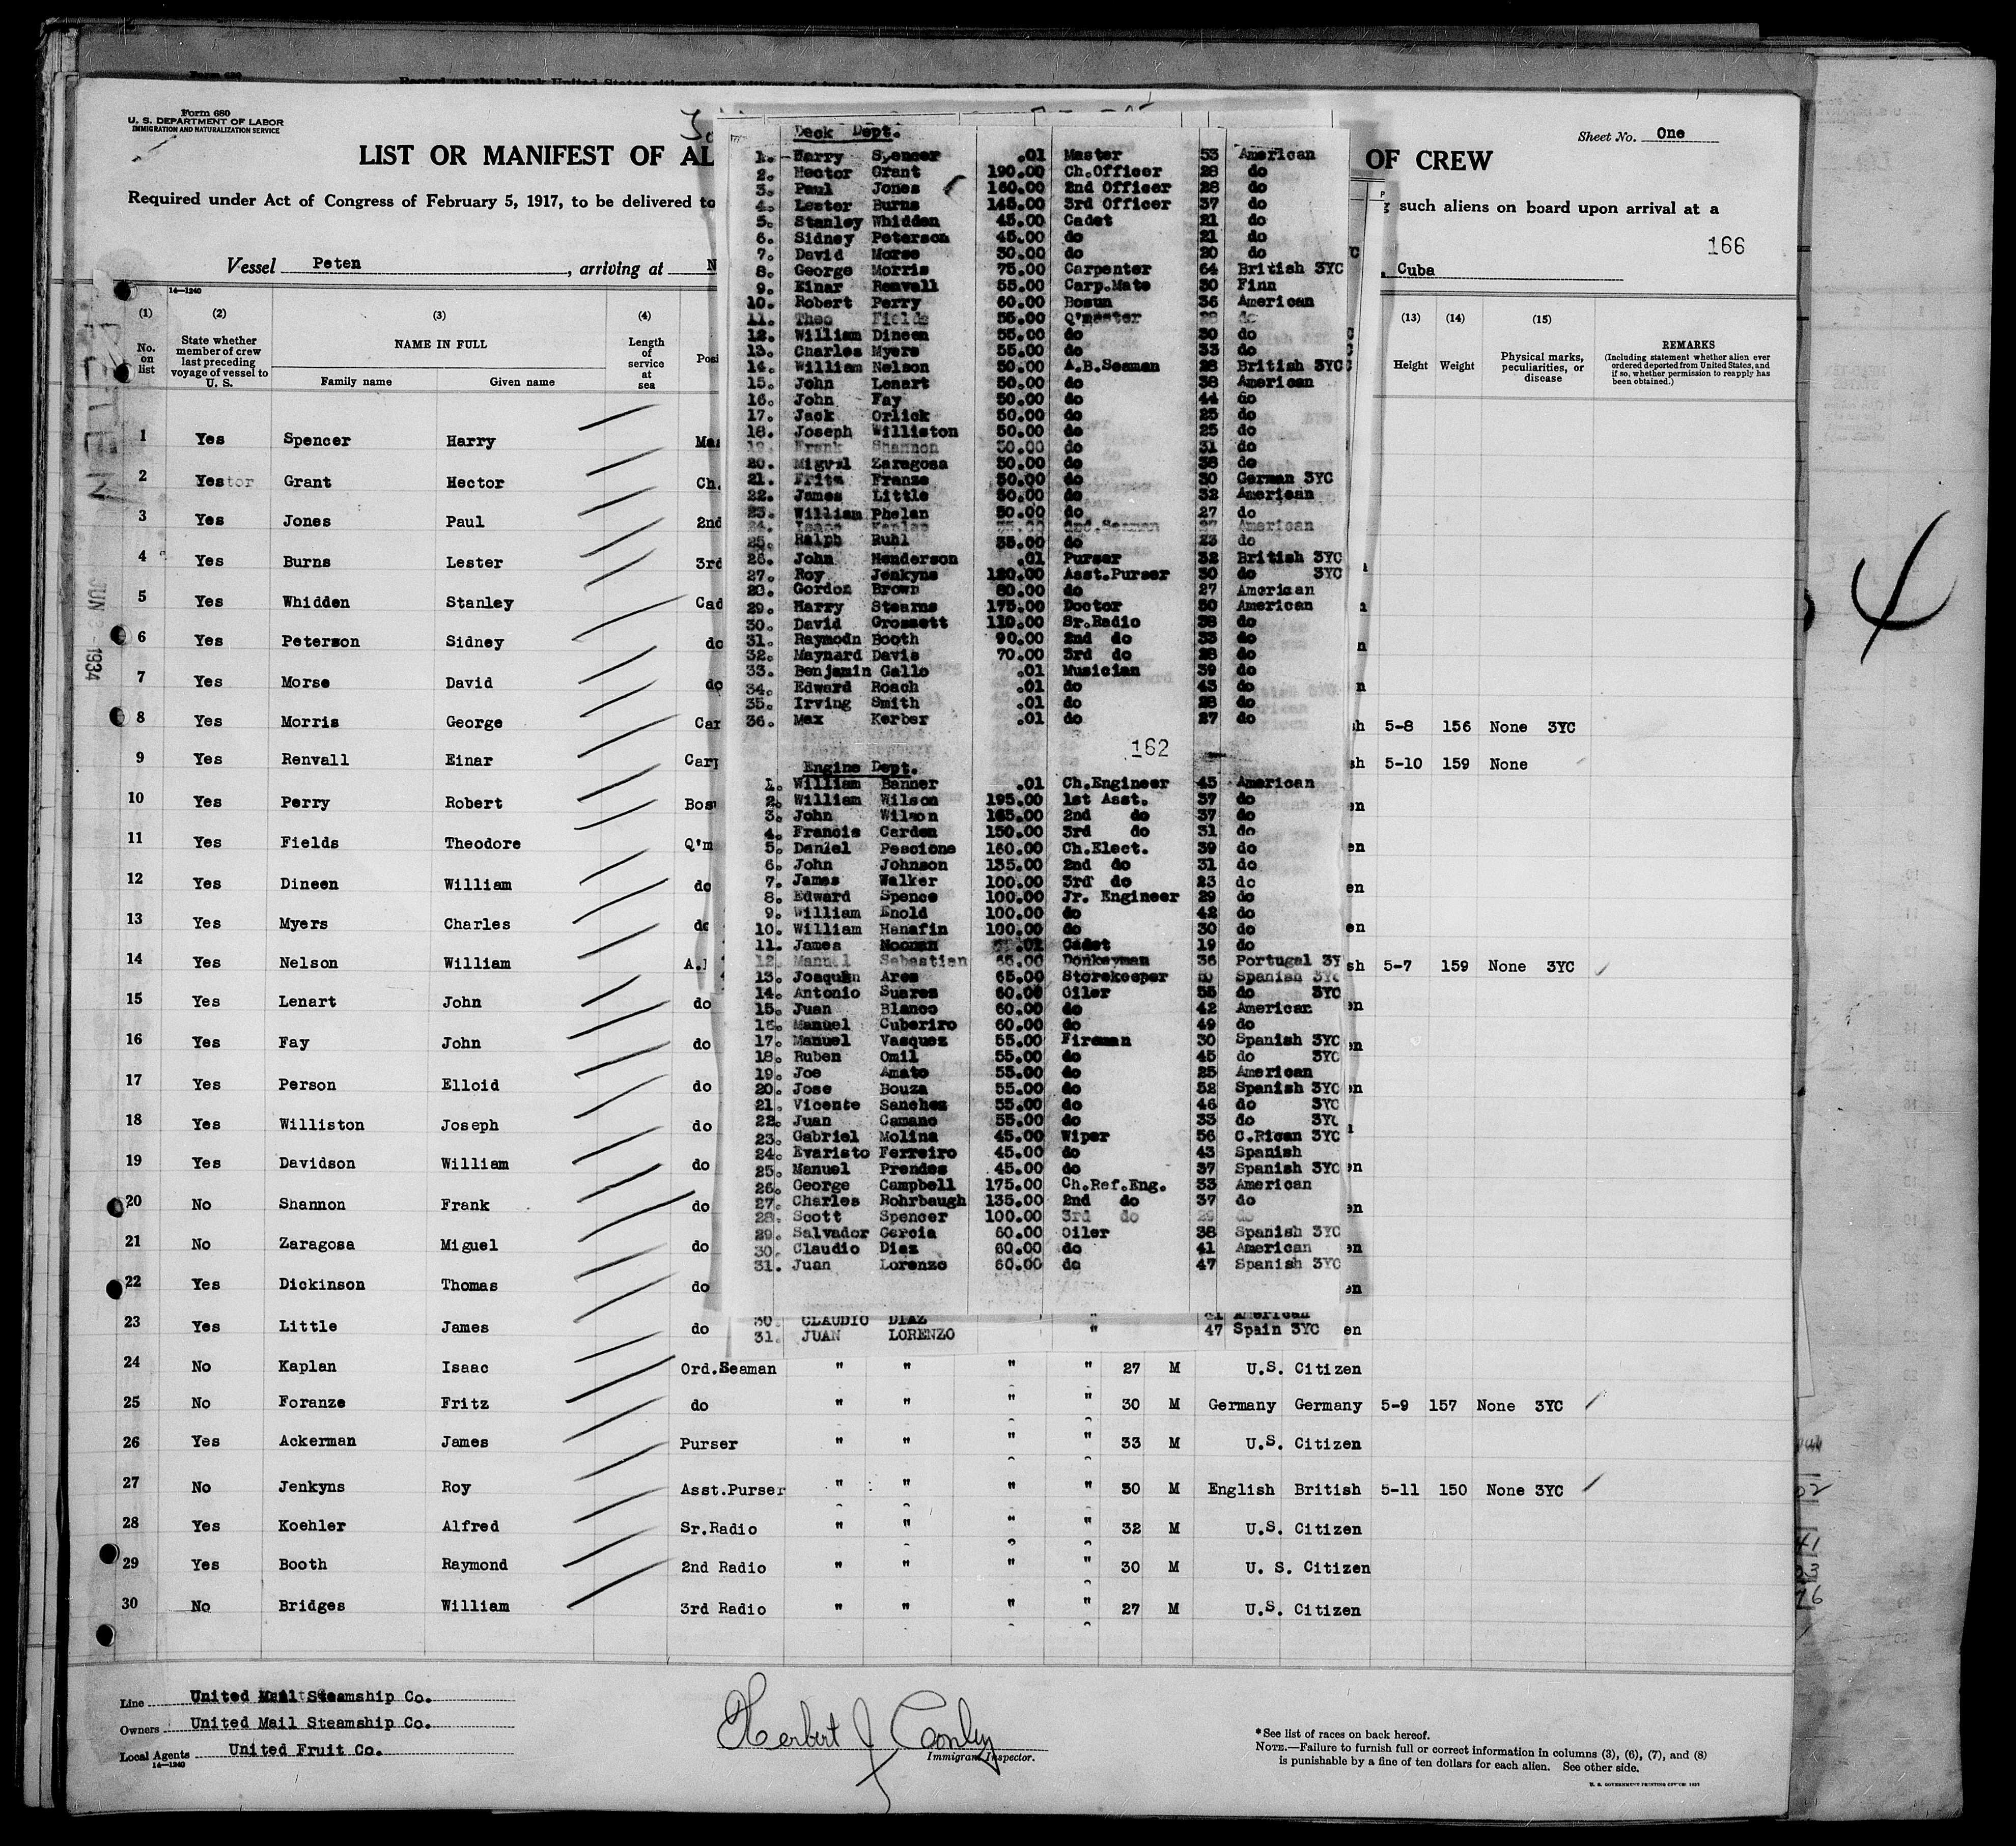 Form 680
U. S. DEPARTMENT OF LABOR
IMMIGRATION AND NATURALIZATION SERVICE
Sheet No. One
LIST OR MANIFEST OF AL
OF CREW
Required under Act of Congress of February 5, 1917, to be delivered to
such aliens on board upon arrival at a
166
Vessel Peten, arriving at N
, Cuba
14—1240
(1) (2) (3) (4) (13) (14) (15)
No. on list
State whether member of crew last preceding voyage of vessel to U. S.
NAME IN FULL
Family name Given name
Length of service at sea
Height Weight
Physical marks, peculiarities, or disease
REMARKS
(Including statement whether alien ever ordered deported from United States, and if so, whether permission to reapply has been obtained.)
JUN 1934
1 Yes Spencer Harry Mas
2 Yes Grant Hector Ch.
3 Yes Jones Paul 2nd
4 Yes Burns Lester 3rd
5 Yes Whidden Stanley Cad
6 Yes Peterson Sidney do
7 Yes Morse David do
8 Yes Morris George Car sh 5-8 156 None 3YC
9 Yes Renvall Einar Carp sh 5-10 159 None
10 Yes Perry Robert Bos en
11 Yes Fields Theodore Q'm en
12 Yes Dineen William do en
13 Yes Myers Charles do en
14 Yes Nelson William A. sh 5-7 159 None 3YC
15 Yes Lenart John do en
16 Yes Fay John do en
17 Yes Person Elloid do en
18 Yes Williston Joseph do
19 Yes Davidson William do en
20 No Shannon Frank do en
21 No Zaragosa Miguel do en
22 Yes Dickinson Thomas do en
23 Yes Little James do en
24 No Kaplan Isaac Ord.Seaman " " " " 27 M U.S. Citizen
25 No Foranze Fritz do " " " " 30 M Germany Germany 5-9 157 None 3YC
26 Yes Ackerman James Purser " " " " 33 M U.S. Citizen
27 No Jenkyns Roy Asst.Purser " " " " 30 M English British 5-11 150 None 3YC
28 Yes Koehler Alfred Sr.Radio " " " " 32 M U.S. Citizen
29 Yes Booth Raymond 2nd Radio " " " " 30 M U. S. Citizen
30 No Bridges William 3rd Radio " " " " 27 M U.S. Citizen
Deck Dept.
1. Harry Spencer .01 Master 53 American
2. Hector Grant 190.00 Ch.Officer 28 do
3. Paul Jones 160.00 2nd Officer 28 do
4. Lester Burns 145.00 3rd Officer 37 do
5. Stanley Whidden 45.00 Cadet 21 do
6. Sidney Peterson 45.00 do 21 do
7. David Morse 30.00 do 20 do
8. George Morris 75.00 Carpenter 64 British 3YC
9. Einar Renvall 55.00 Carp.Mate 30 Finn
10. Robert Perry 60.00 Bosun 36 American
11. Theo Fields 55.00 Q'master 28 do
12. William Dineen 55.00 do 30 do
13. Charles Myers 55.00 do 33 do
14. William Nelson 50.00 A.B.Seaman 28 British 3YC
15. John Lenart 50.00 do 38 American
16. John Fay 50.00 do 44 do
17. Jack Orlick 50.00 do 25 do
18. Joseph Williston 50.00 do 25 do
19. Frank Shannon 50.00 do 31 do
20. Migvel Zaragosa 50.00 do 38 do
21. Fritz Franze 50.00 do 30 German 3YC
22. James Little 50.00 do 32 American
23. William Phelan 50.00 do 27 do
24. Isaac Kaplan 35.00 Ord.Seaman 27 American
25. Ralph Ruhl 35.00 do 23 do
26. John Henderson .01 Purser 32 British 3YC
27. Roy Jenkyns 120.00 Asst.Purser 30 do 3YC
28. Gordon Brown 80.00 do 27 American
29. Harry Stearns 175.00 Doctor 50 American
30. David Grossett 110.00 Sr.Radio 38 do
31. Raymodn Booth 90.00 2nd do 33 do
32. Maynard Davis 70.00 3rd do 28 do
33. Benjamin Gallo .01 Musician 39 do
34. Edward Roach .01 do 43 do
35. Irving Smith .01 do 28 do
36. Max Kerber .01 do 27 do
162
Engine Dept.
1. William Banner .01 Ch.Engineer 45 American
2. William Wilson 195.00 1st Asst. 37 do
3. John Wilson 165.00 2nd do 37 do
4. Francis Carden 150.00 3rd do 31 do
5. Daniel Pescione 160.00 Ch.Elect. 39 do
6. John Johnson 135.00 2nd do 31 do
7. James Walker 100.00 3rd do 23 do
8. Edward Spence 100.00 Jr. Engineer 29 do
9. William Enold 100.00 do 42 do
10. William Hanafin 100.00 do 30 do
11. James Noonan .01 Cadet 19 do
12. Manuel Sebastian 65.00 Donkeyman 36 Portugal 3Y
13. Joaquin Ares 65.00 Storekeeper Spanish 3YC
14. Antonio Suarez 60.00 Oiler 55 do 3YC
15. Juan Blanco 60.00 do 42 American
16. Manuel Cuberiro 60.00 do 49 do
17. Manuel Vasquez 55.00 Fireman 30 Spanish 3YC
18. Ruben Omil 55.00 do 45 do 3YC
19. Joe Amato 55.00 do 25 American
20. Jose Bouza 55.00 do 52 Spanish 3YC
21. Vicente Sanchez 55.00 do 46 do 3YC
22. Juan Camano 55.00 do 33 do 3YC
23. Gabriel Molina 45.00 Wiper 56 C.Rican 3YC
24. Evaristo Ferreiro 45.00 do 43 Spanish
25. Manuel Prendes 45.00 do 37 Spanish 3YC
26. George Campbell 175.00 Ch.Ref.Eng. 33 American
27. Charles Rohrbaugh 135.00 2nd do 37 do
28. Scott Spencer 100.00 3rd do 29 do
29. Salvador Garcia 60.00 Oiler 38 Spanish 3YC
30. Claudio Diaz 60.00 do 41 American
31. Juan Lorenzo 60.00 do 47 Spanish 3YC
30. CLAUDIO DIAZ " 41 American
31. JUAN LORENZO " 47 Spain 3YC
Line United Mail Steamship Co.
Owners United Mail Steamship Co.
Local Agents United Fruit Co.
14—1240
Herbert J Conley
Immigrant Inspector.
*See list of races on back hereof.
NOTE.—Failure to furnish full or correct information in columns (3), (6), (7), and (8)
is punishable by a fine of ten dollars for each alien. See other side.
U. S. GOVERNMENT PRINTING OFFICE